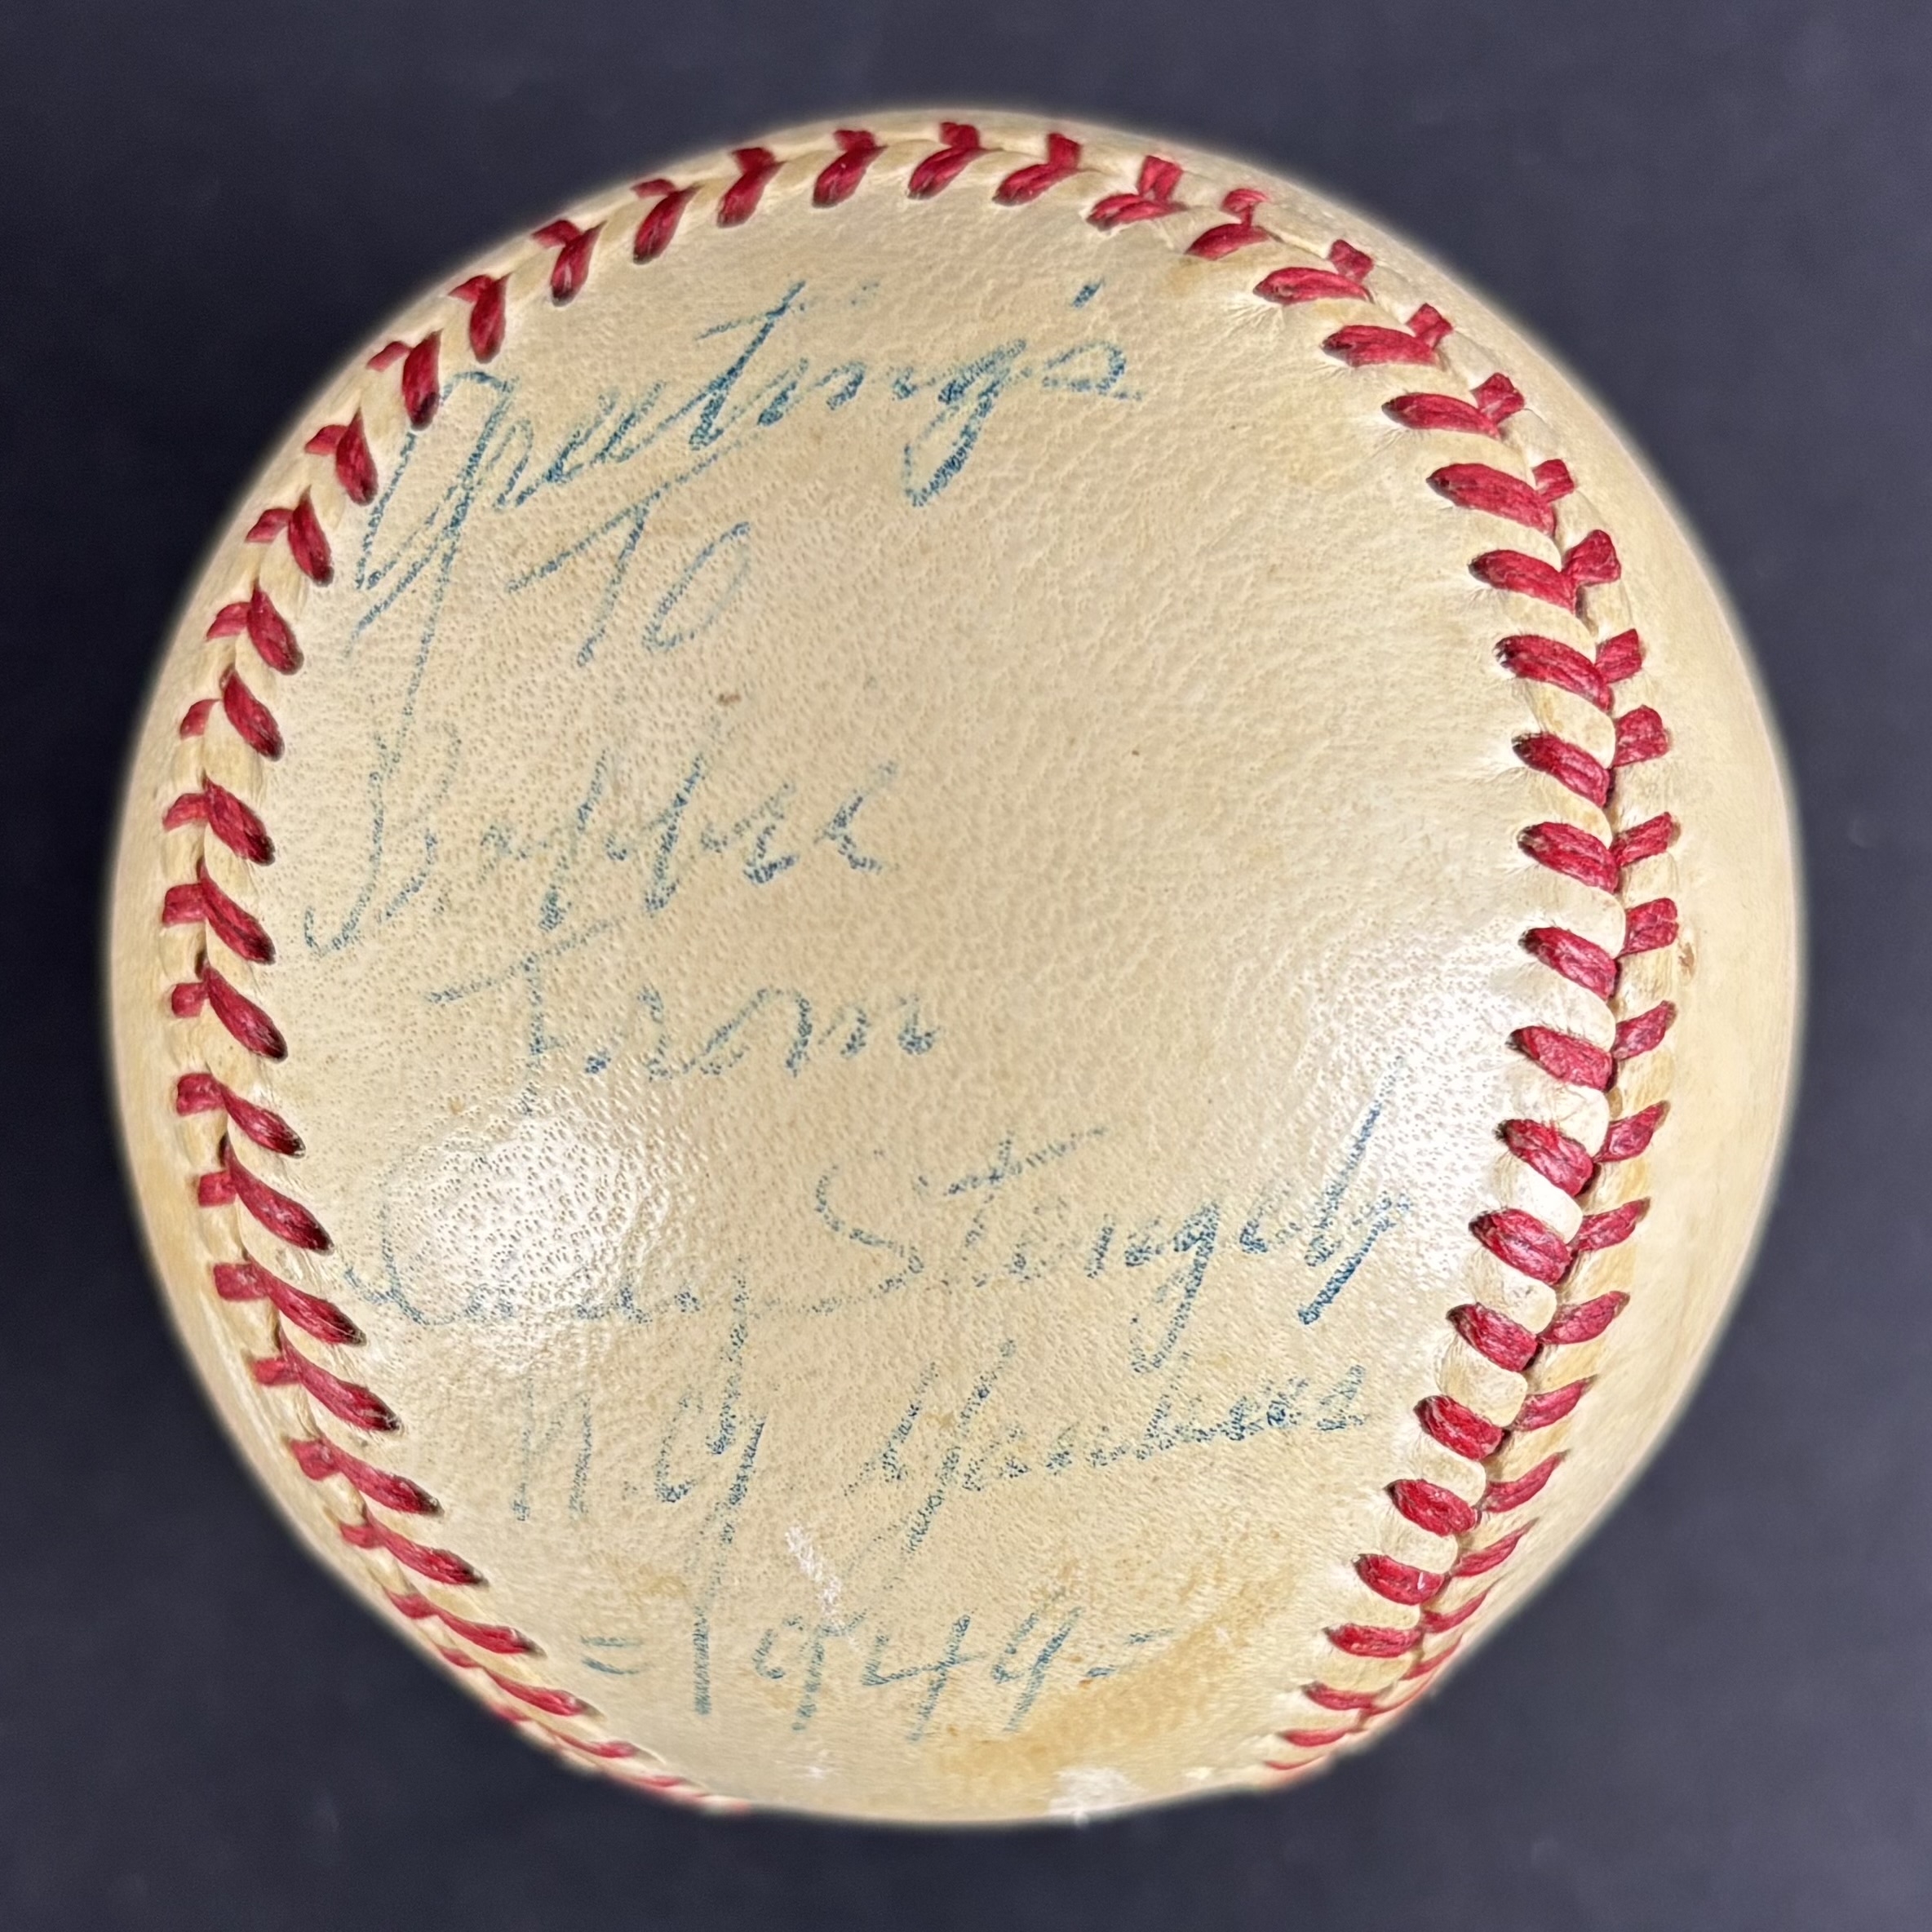 Greeting's
To
From
Casey Stengel
N.Y. Yankees
=1949=